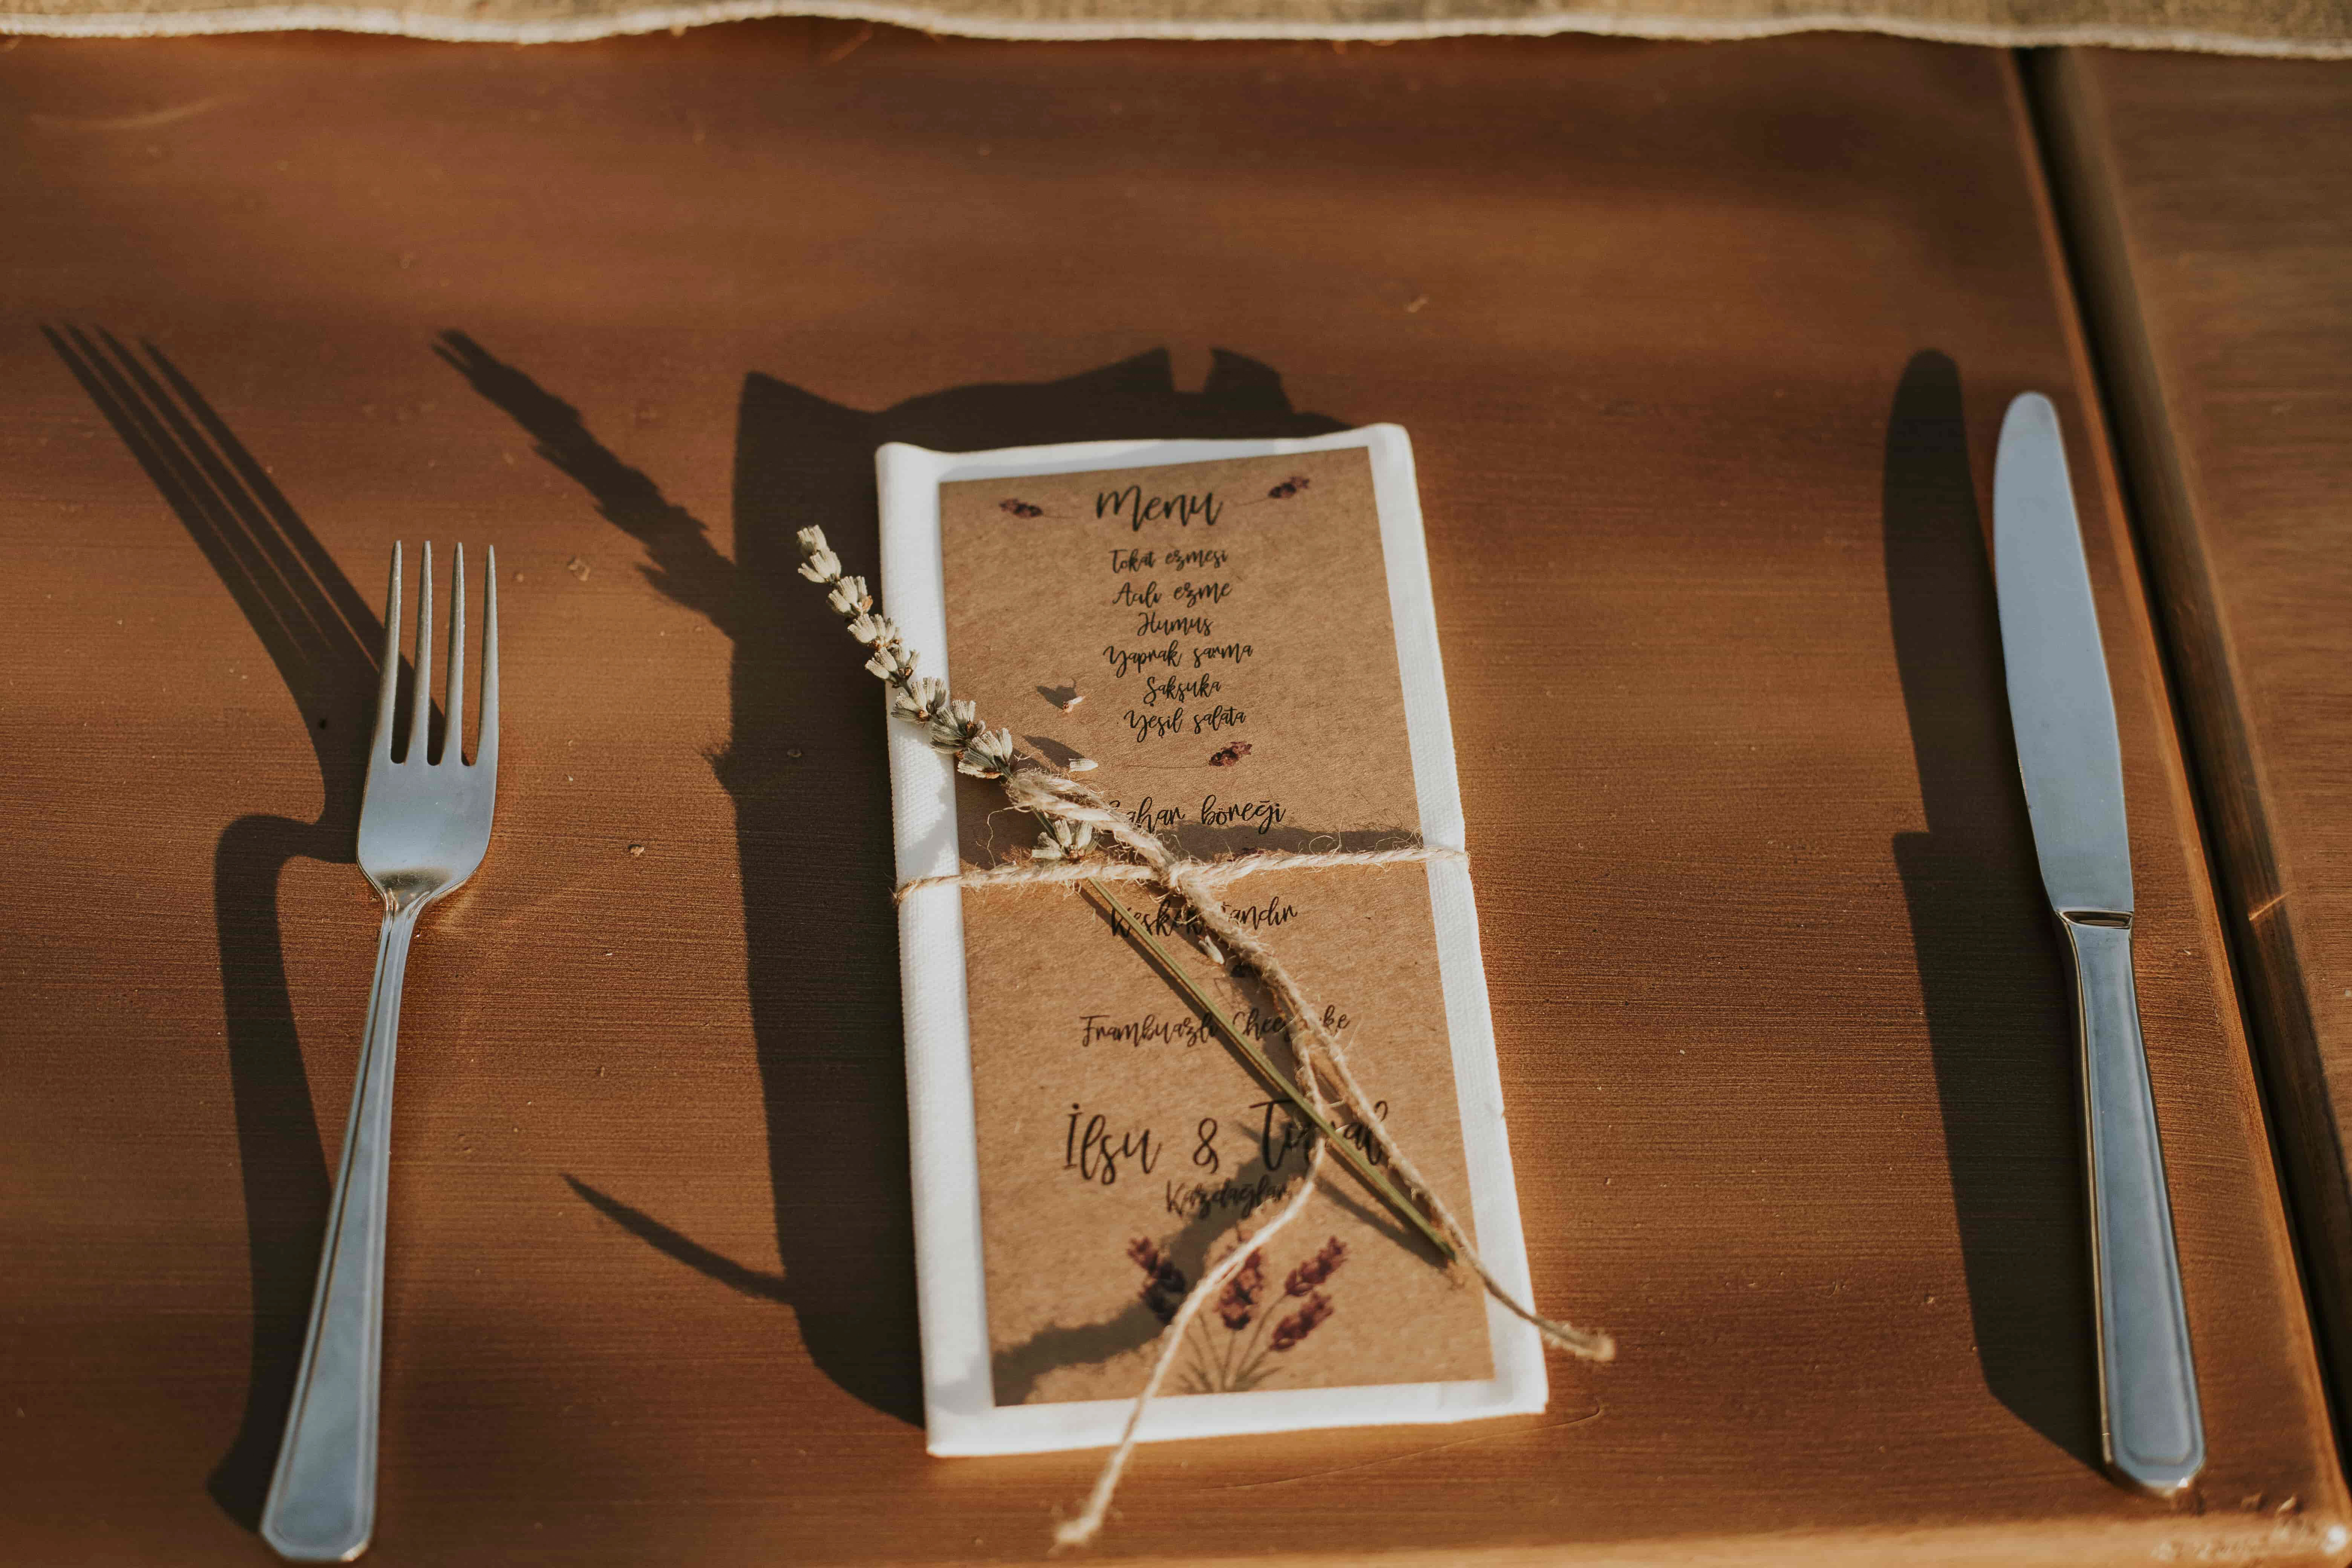 Menu
Tokat ezmesi
Acılı ezme
Humus
Yaprak sarma
Şakşuka
Yeşil salata
böreği
Keşkek Tandır
Frambuazlı Cheesecake
İlsu &
Kazdağları